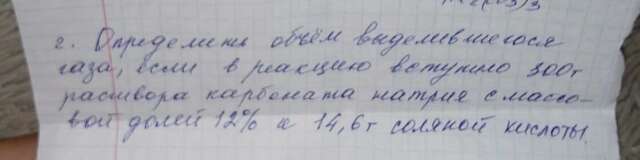 2. Определить объём выделившегося
газа, если в реакцию вступило 300г
раствора карбоната натрия с массо-
вой долей 12% и 14,6г соляной кислоты.